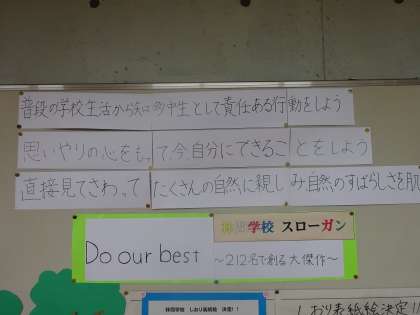 普段の学校生活から知多中生として責任ある行動をしよう
思いやりの心をもって、今、自分にできることをしよう
直接見てさわって たくさんの自然に親しみ、自然のすばらしさを肌
林間学校 スローガン
Do our best ～212名で創る大傑作～
林間学校 しおり表紙絵 決定!!
しおり表紙絵決定!!